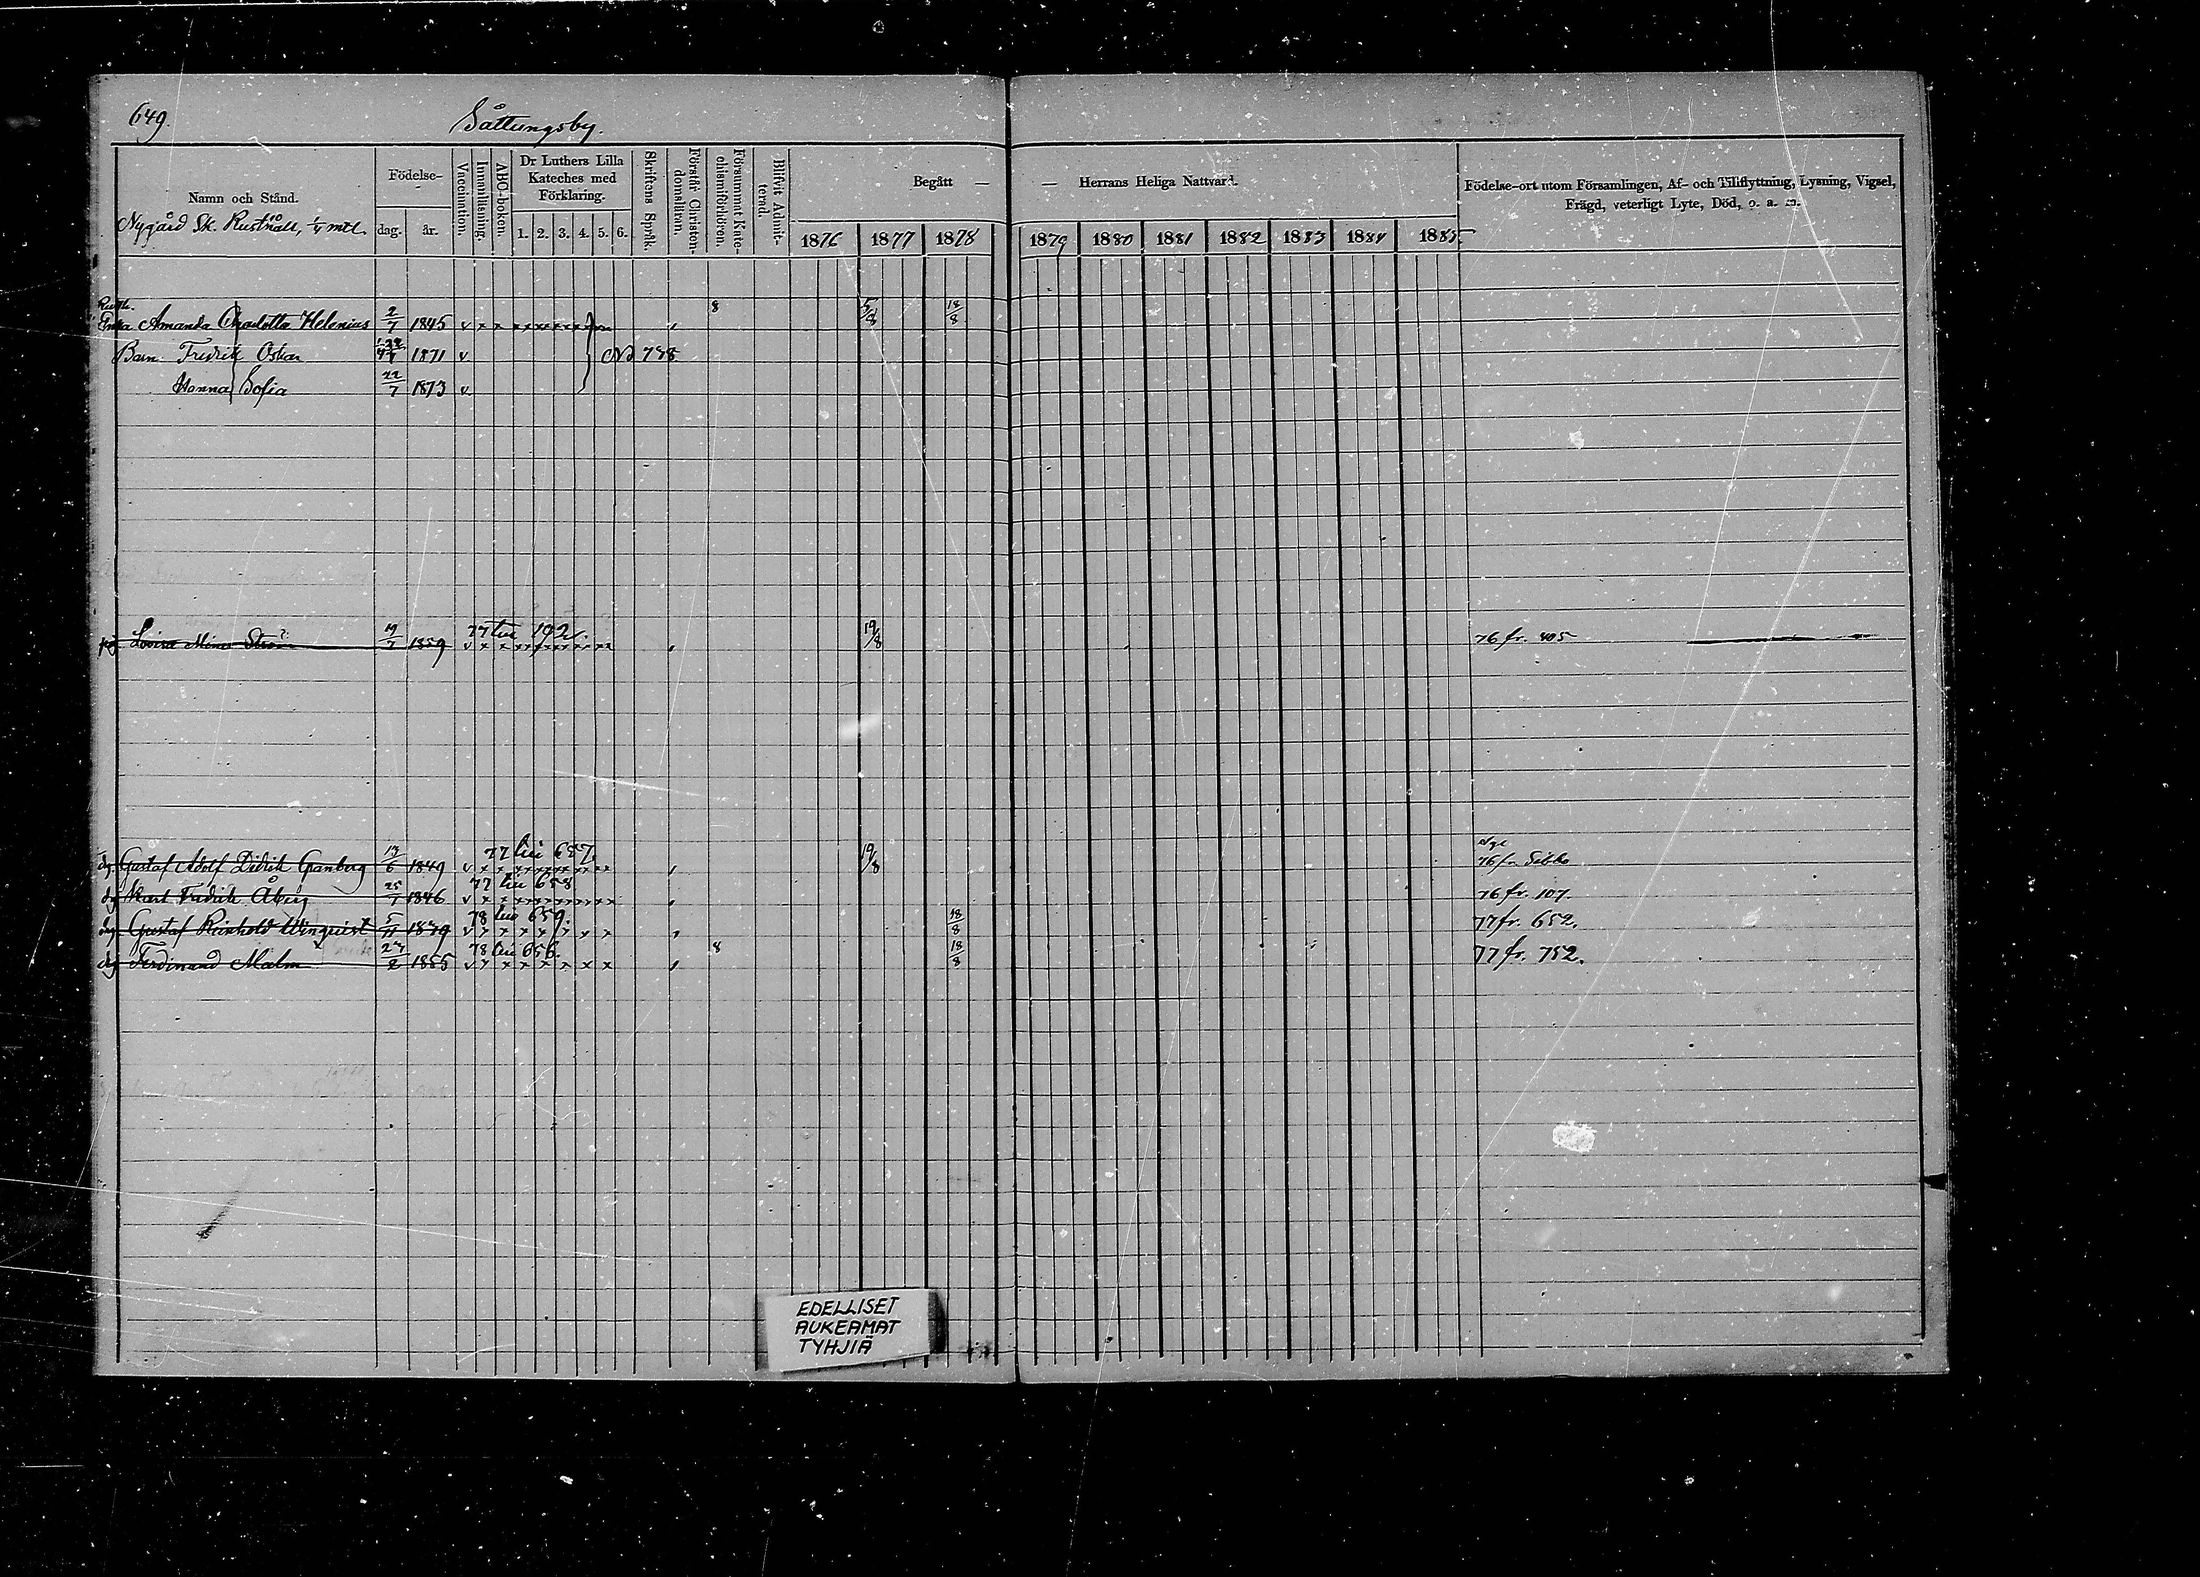 649.
Såttungsby.
Namn och Stånd.
Nygård Sk. Rusthåll, 1/4 mtl.
Födelse-
dag. år.
Vaccination.
Innanläsning.
ABC-boken.
Dr Luthers Lilla
Kateches med
Förklaring.
1. 2. 3. 4. 5. 6.
Skriftens Språk.
Förstår Christen-
domsläran.
Försummat Kate-
chismiförhören.
Blifvit Admit-
terad.
Begått —
— Herrans Heliga Nattvard.
1876 1877 1878 1879 1880 1881 1882 1883 1884 1885
Födelse-ort utom Församlingen, Af- och Tillflyttning, Lysning, Vigsel,
Frägd, veterligt Lyte, Död, o. a. m.
Enka Amanda Charlotta Helenius 2/7 1845 v x x 8 5/8 18/8
Barn Fredrik Oskar 1871 v
Hanna Sofia 22/7 1873 v
pig. Lovisa Mina 19/7 1859 77 till 192. 19/8 76 fr. 405
dg. Gustaf Adolf Didrik Granberg 13/6 1849 77 till 657. 19/8 76 fr. Sibbo
dg Fredrik Åberg 25/7 1846 77 till 658 76 fr. 107.
dg. Gustaf Reinhold Winquist 5/11 78 till 659. 18/8 77 fr. 652.
dg Ferdinand Malm 27/2 1855 78 till 656. 8 18/8 77 fr. 752.
EDELLISET
AUKEAMAT
TYHJIÄ